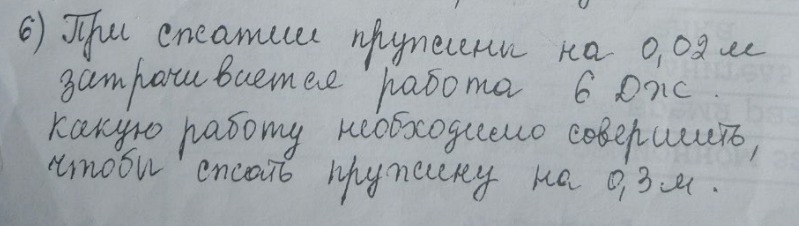 6) При сжатии пружины на 0,02 м
затрачивается работа 6 Дж.
Какую работу необходимо совершить,
чтобы сжать пружину на 0,3 м.